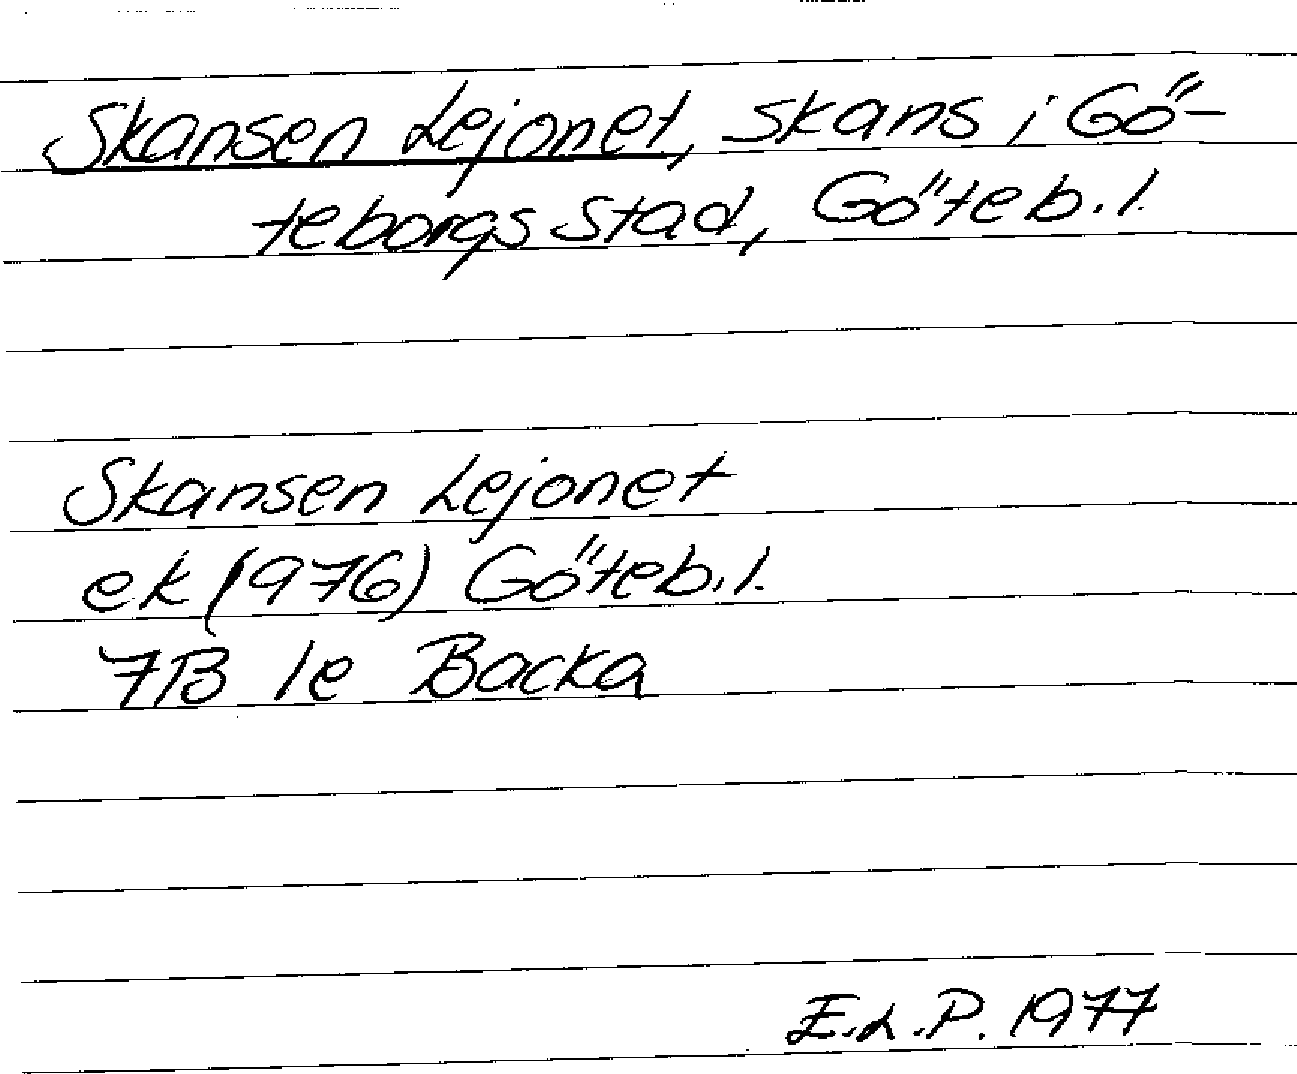 Skansen Lejonet, skans i Gö-
teborgs stad, Göteb.l.
Skansen Lejonet
ek (1976) Göteb.l.
7B 1e Backa
E.L.P. 1977